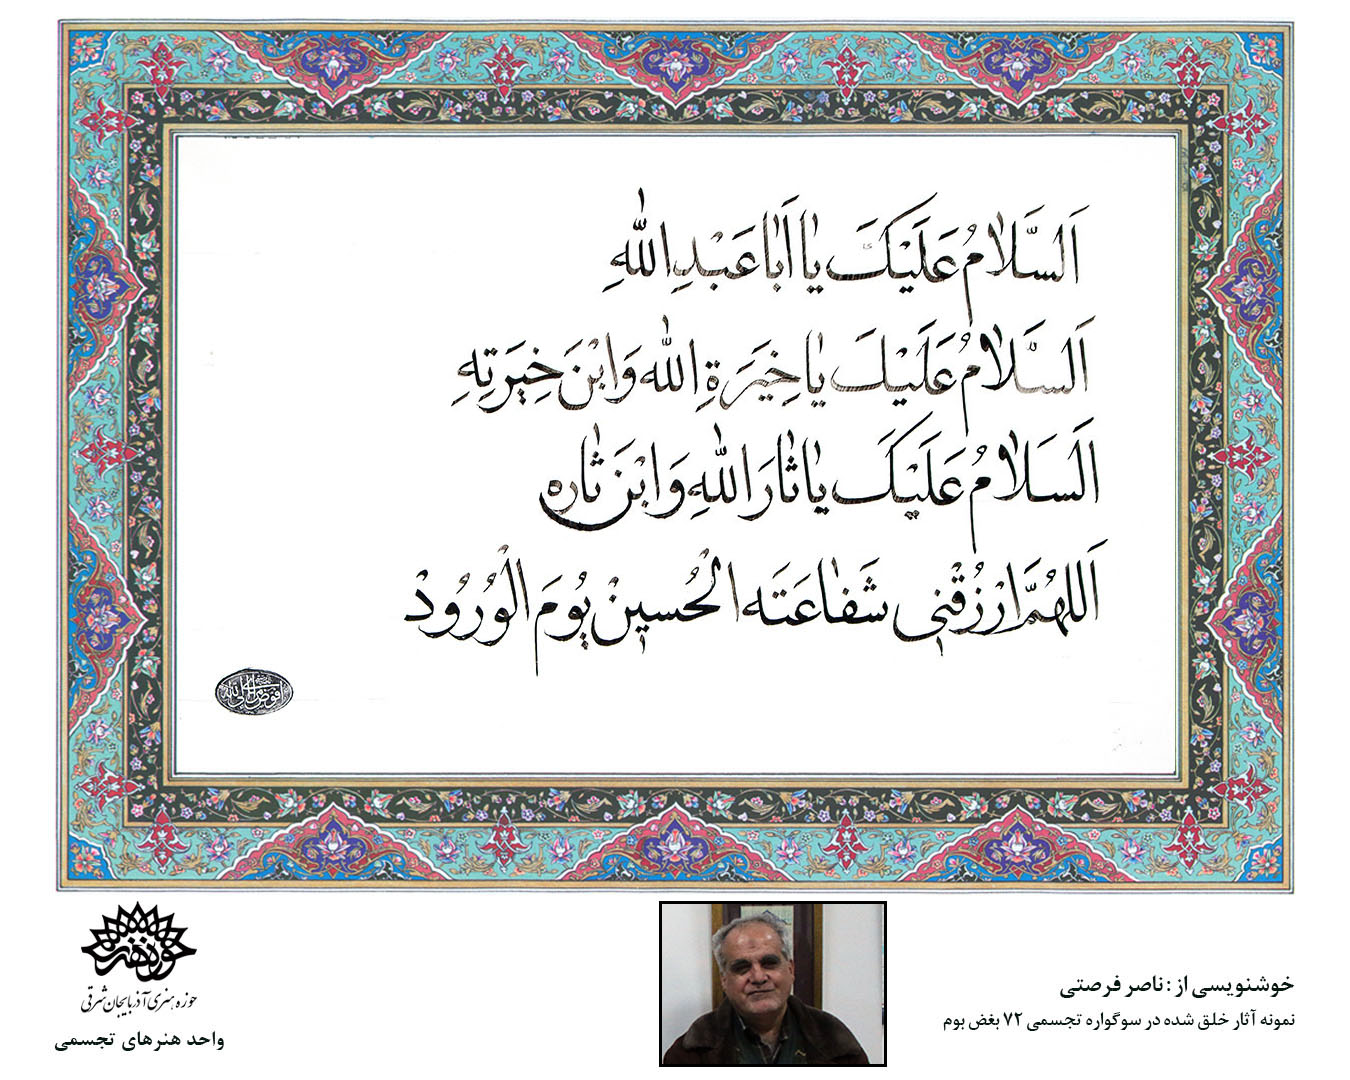 اَلسَّلامُ عَلَيْكَ يا اَبا عَبْدِ اللهِ
اَلسَّلامُ عَلَيْكَ يا خِيَرَةِ الله وَ ابْنَ خِيَرَتِهِ
اَلسَلامُ عَلَيْكَ يا ثارَ اللهِ وَ ابْنَ ثارِه
اَللهُمَّ ارْزُقْني شَفاعَتَه الْحُسين يُومَ الْوُرُودْ
افوض امری الی الله
حوزه هنری
حوزه هنری آذربایجان شرقی
واحد هنرهای تجسمی
خوشنویسی از : ناصر فرصتی
نمونه آثار خلق شده در سوگواره تجسمی ۷۲ بغض بوم